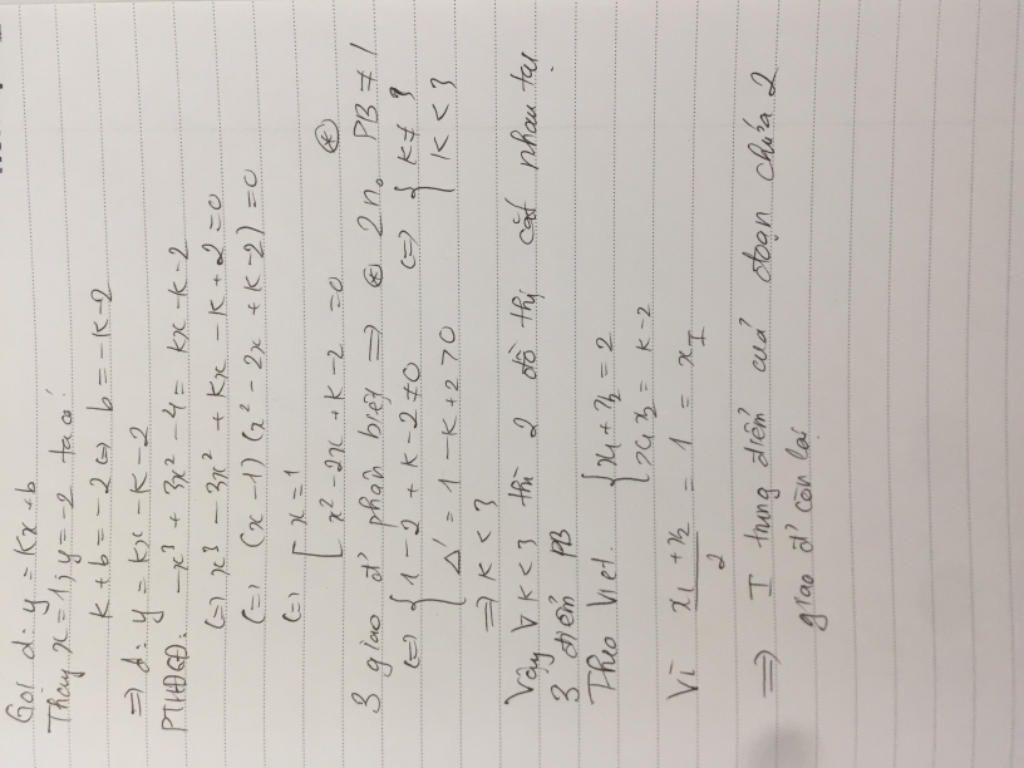 Gọi d: y = kx + b
Thay x = 1; y = -2 ta có:
k + b = -2 <=> b = -k-2
=> d: y = kx - k - 2
PTHĐGĐ: -x³ + 3x² - 4 = kx - k - 2
<=> x³ - 3x² + kx - k + 2 = 0
<=> (x - 1)(x² - 2x + k - 2) = 0
<=> [ x = 1
x² - 2x + k - 2 = 0 (*)
3 giao đ' phân biệt => (*) 2 no PB ≠ 1
<=> { 1 - 2 + k - 2 ≠ 0 <=> { k ≠ 3
Δ' = 1 - k + 2 > 0 k < 3
=> k < 3
Vậy ∀ k < 3 thì 2 đồ thị cắt nhau tại
3 điểm PB
Theo Viet. { x₁ + x₂ = 2
x₁x₂ = k - 2
Vì (x₁ + x₂)/2 = 1 = x_I
=> I trung điểm của đoạn chứa 2
giao đ' còn lại